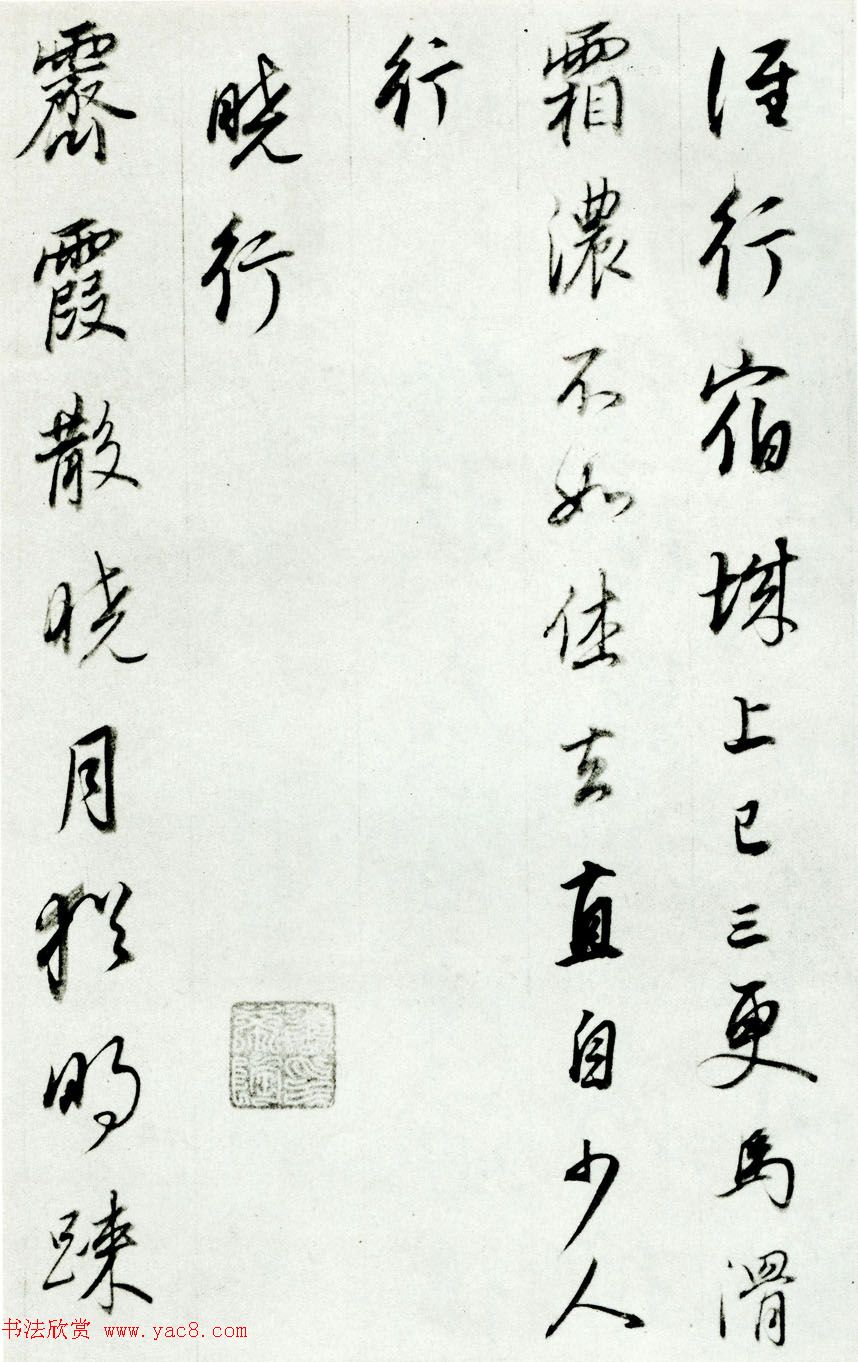 誰行宿城上已三更馬滑
霜濃不如休去直自少人
行
曉行
霽霞散曉月猶明疎
书法欣赏 www.yac8.com